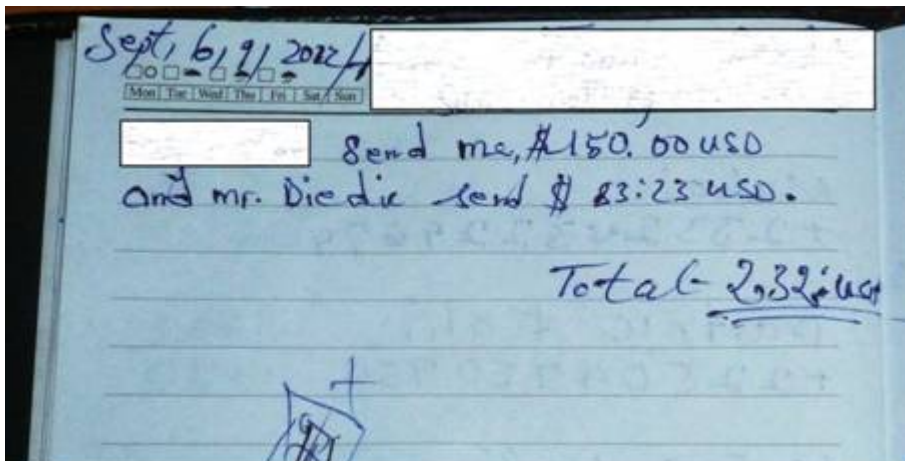 Sept, 6/9/2022/
Mon Tue Wed Thu Fri Sat Sun
Send me, $150.00 USD
and mr. Diedie send $ 83:23 USD.
Total- 232: